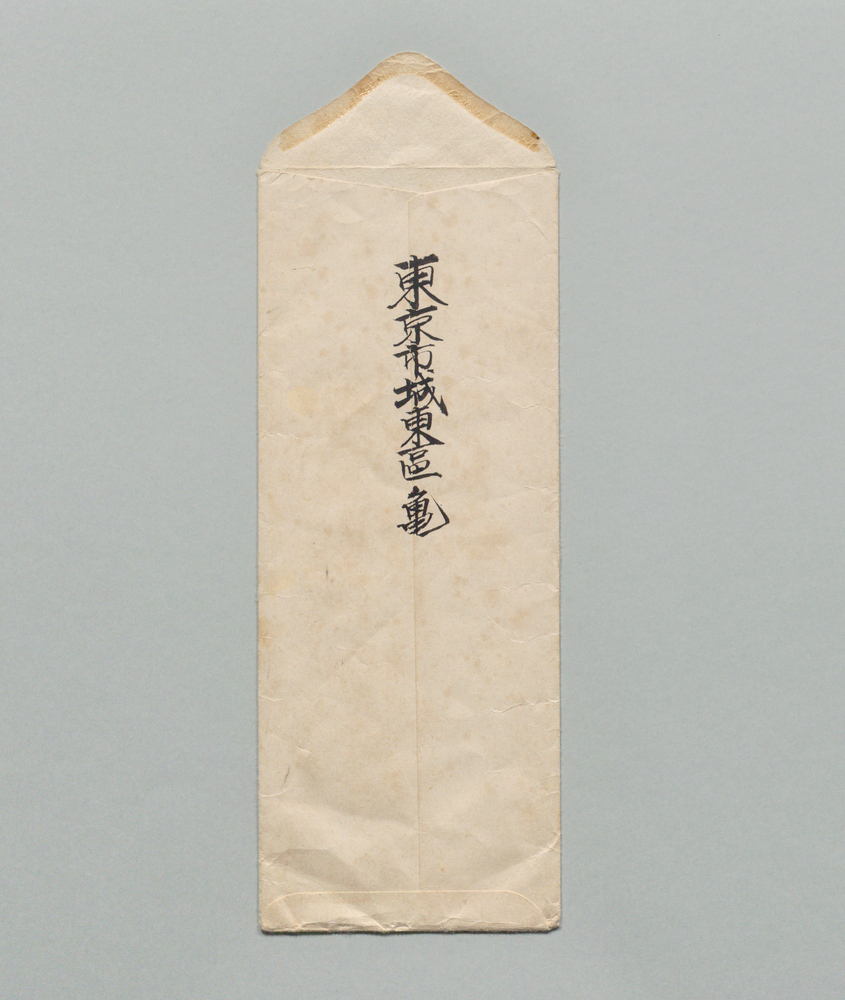 東京市城東區亀